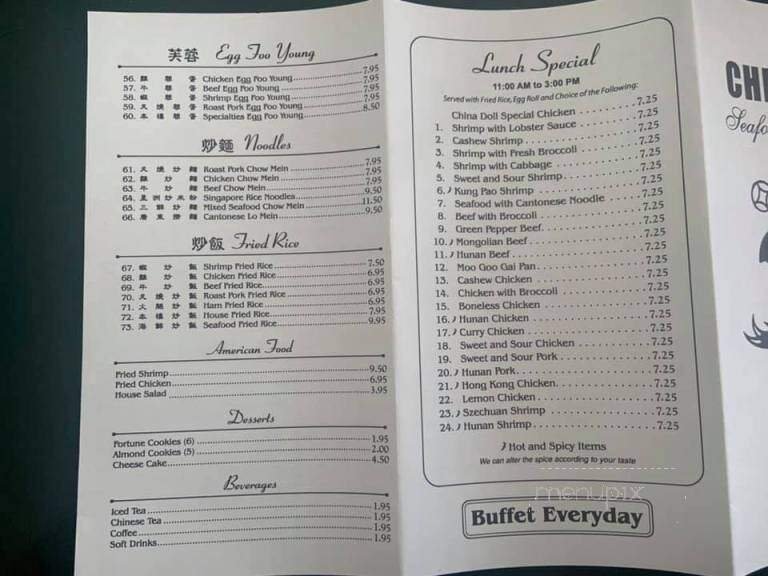 芙蓉 Egg Foo Young
56. 雞蓉蛋 Chicken Egg Foo Young 7.95
57. 牛蓉蛋 Beef Egg Foo Young 7.95
58. 蝦蓉蛋 Shrimp Egg Foo Young 7.95
59. 叉燒蓉蛋 Roast Pork Egg Foo Young 7.95
60. 本樓蓉蛋 Specialties Egg Foo Young 8.50
炒麵 Noodles
61. 叉燒炒麵 Roast Pork Chow Mein 7.95
62. 雞炒麵 Chicken Chow Mein 7.95
63. 牛炒麵 Beef Chow Mein 7.95
64. 星洲炒米粉 Singapore Rice Noodles 9.50
65. 三鮮炒麵 Mixed Seafood Chow Mein 11.50
66. 廣東撈麵 Cantonese Lo Mein 9.50
炒飯 Fried Rice
67. 蝦炒飯 Shrimp Fried Rice 7.50
68. 雞炒飯 Chicken Fried Rice 6.95
69. 牛炒飯 Beef Fried Rice 6.95
70. 叉燒炒飯 Roast Pork Fried Rice 6.95
71. 火腿炒飯 Ham Fried Rice 6.95
72. 本樓炒飯 House Fried Rice 7.95
73. 海鮮炒飯 Seafood Fried Rice 9.95
American Food
Fried Shrimp 9.50
Fried Chicken 6.95
House Salad 3.95
Desserts
Fortune Cookies (6) 1.95
Almond Cookies (5) 2.00
Cheese Cake 4.50
Beverages
Iced Tea 1.95
Chinese Tea 1.95
Coffee 1.95
Soft Drinks 1.95
Lunch Special
11:00 AM to 3:00 PM
Served with Fried Rice, Egg Roll and Choice of the Following:
China Doll Special Chicken 7.25
1. Shrimp with Lobster Sauce 7.25
2. Cashew Shrimp 7.25
3. Shrimp with Fresh Broccoli 7.25
4. Shrimp with Cabbage 7.25
5. Sweet and Sour Shrimp 7.25
6. Kung Pao Shrimp 7.25
7. Seafood with Cantonese Noodle 7.25
8. Beef with Broccoli 7.25
9. Green Pepper Beef 7.25
10. Mongolian Beef 7.25
11. Hunan Beef 7.25
12. Moo Goo Gai Pan 7.25
13. Cashew Chicken 7.25
14. Chicken with Broccoli 7.25
15. Boneless Chicken 7.25
16. Hunan Chicken 7.25
17. Curry Chicken 7.25
18. Sweet and Sour Chicken 7.25
19. Sweet and Sour Pork 7.25
20. Hunan Pork 7.25
21. Hong Kong Chicken 7.25
22. Lemon Chicken 7.25
23. Szechuan Shrimp 7.25
24. Hunan Shrimp 7.25
Hot and Spicy Items
We can alter the spice according to your taste
menupix
Buffet Everyday
CHI
Seafo